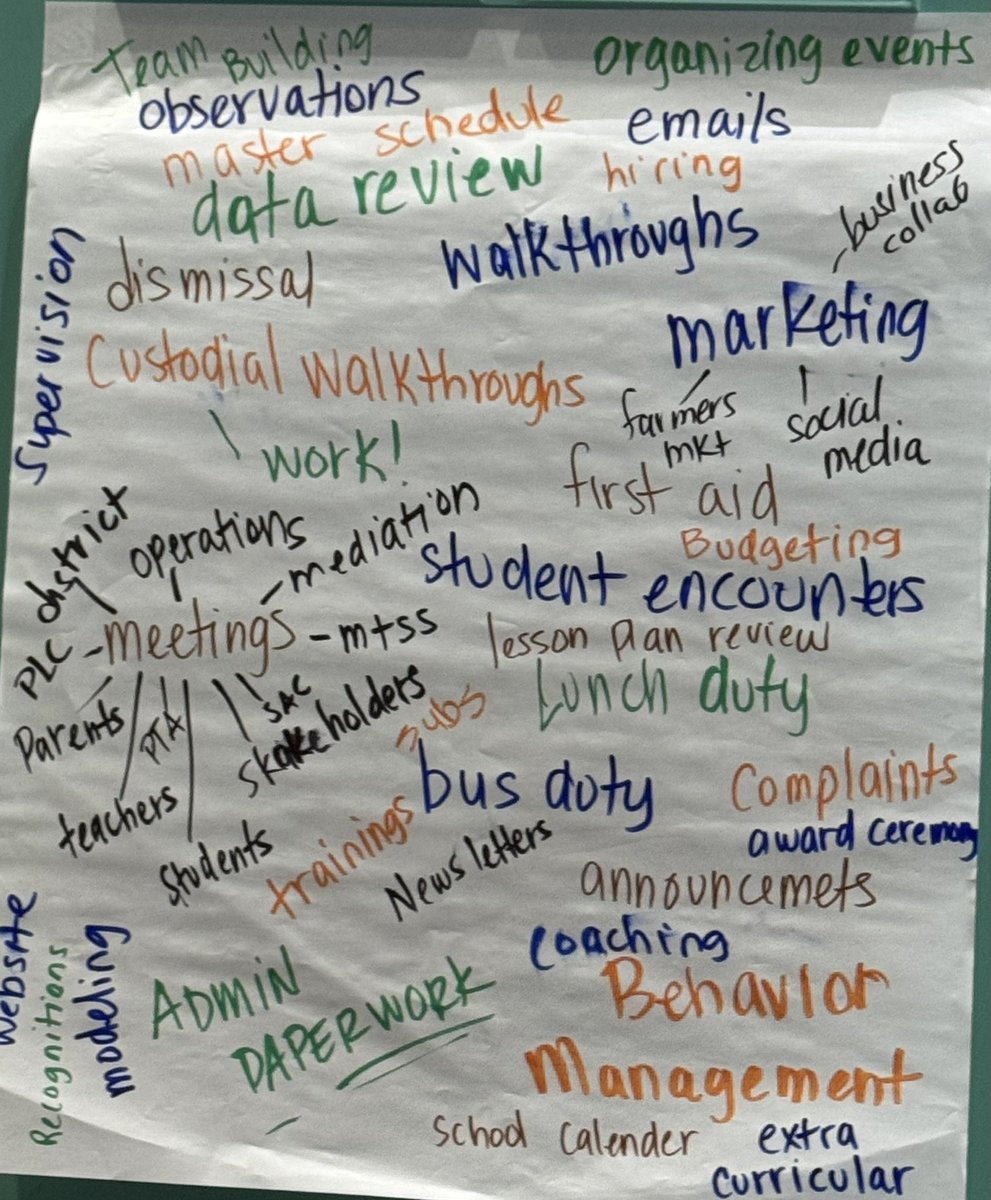 Team Building
organizing events
observations
emails
master schedule
hiring
data review
business
collab
walkthroughs
Supervision
dismissal
marketing
Custodial walkthroughs
farmers
mkt
social
media
work!
first aid
district
operations
mediation
Budgeting
student encounters
PLC - meetings - mtss
lesson plan review
Parents
PTA
SAC
skakeholders
subs
Lunch duty
teachers
bus duty
Complaints
students
trainings
Newsletters
award ceremony
announcemets
website
Recognitions
modeling
coaching
ADMIN
PAPERWORK
Behavior
Management
school calender
extra
curricular